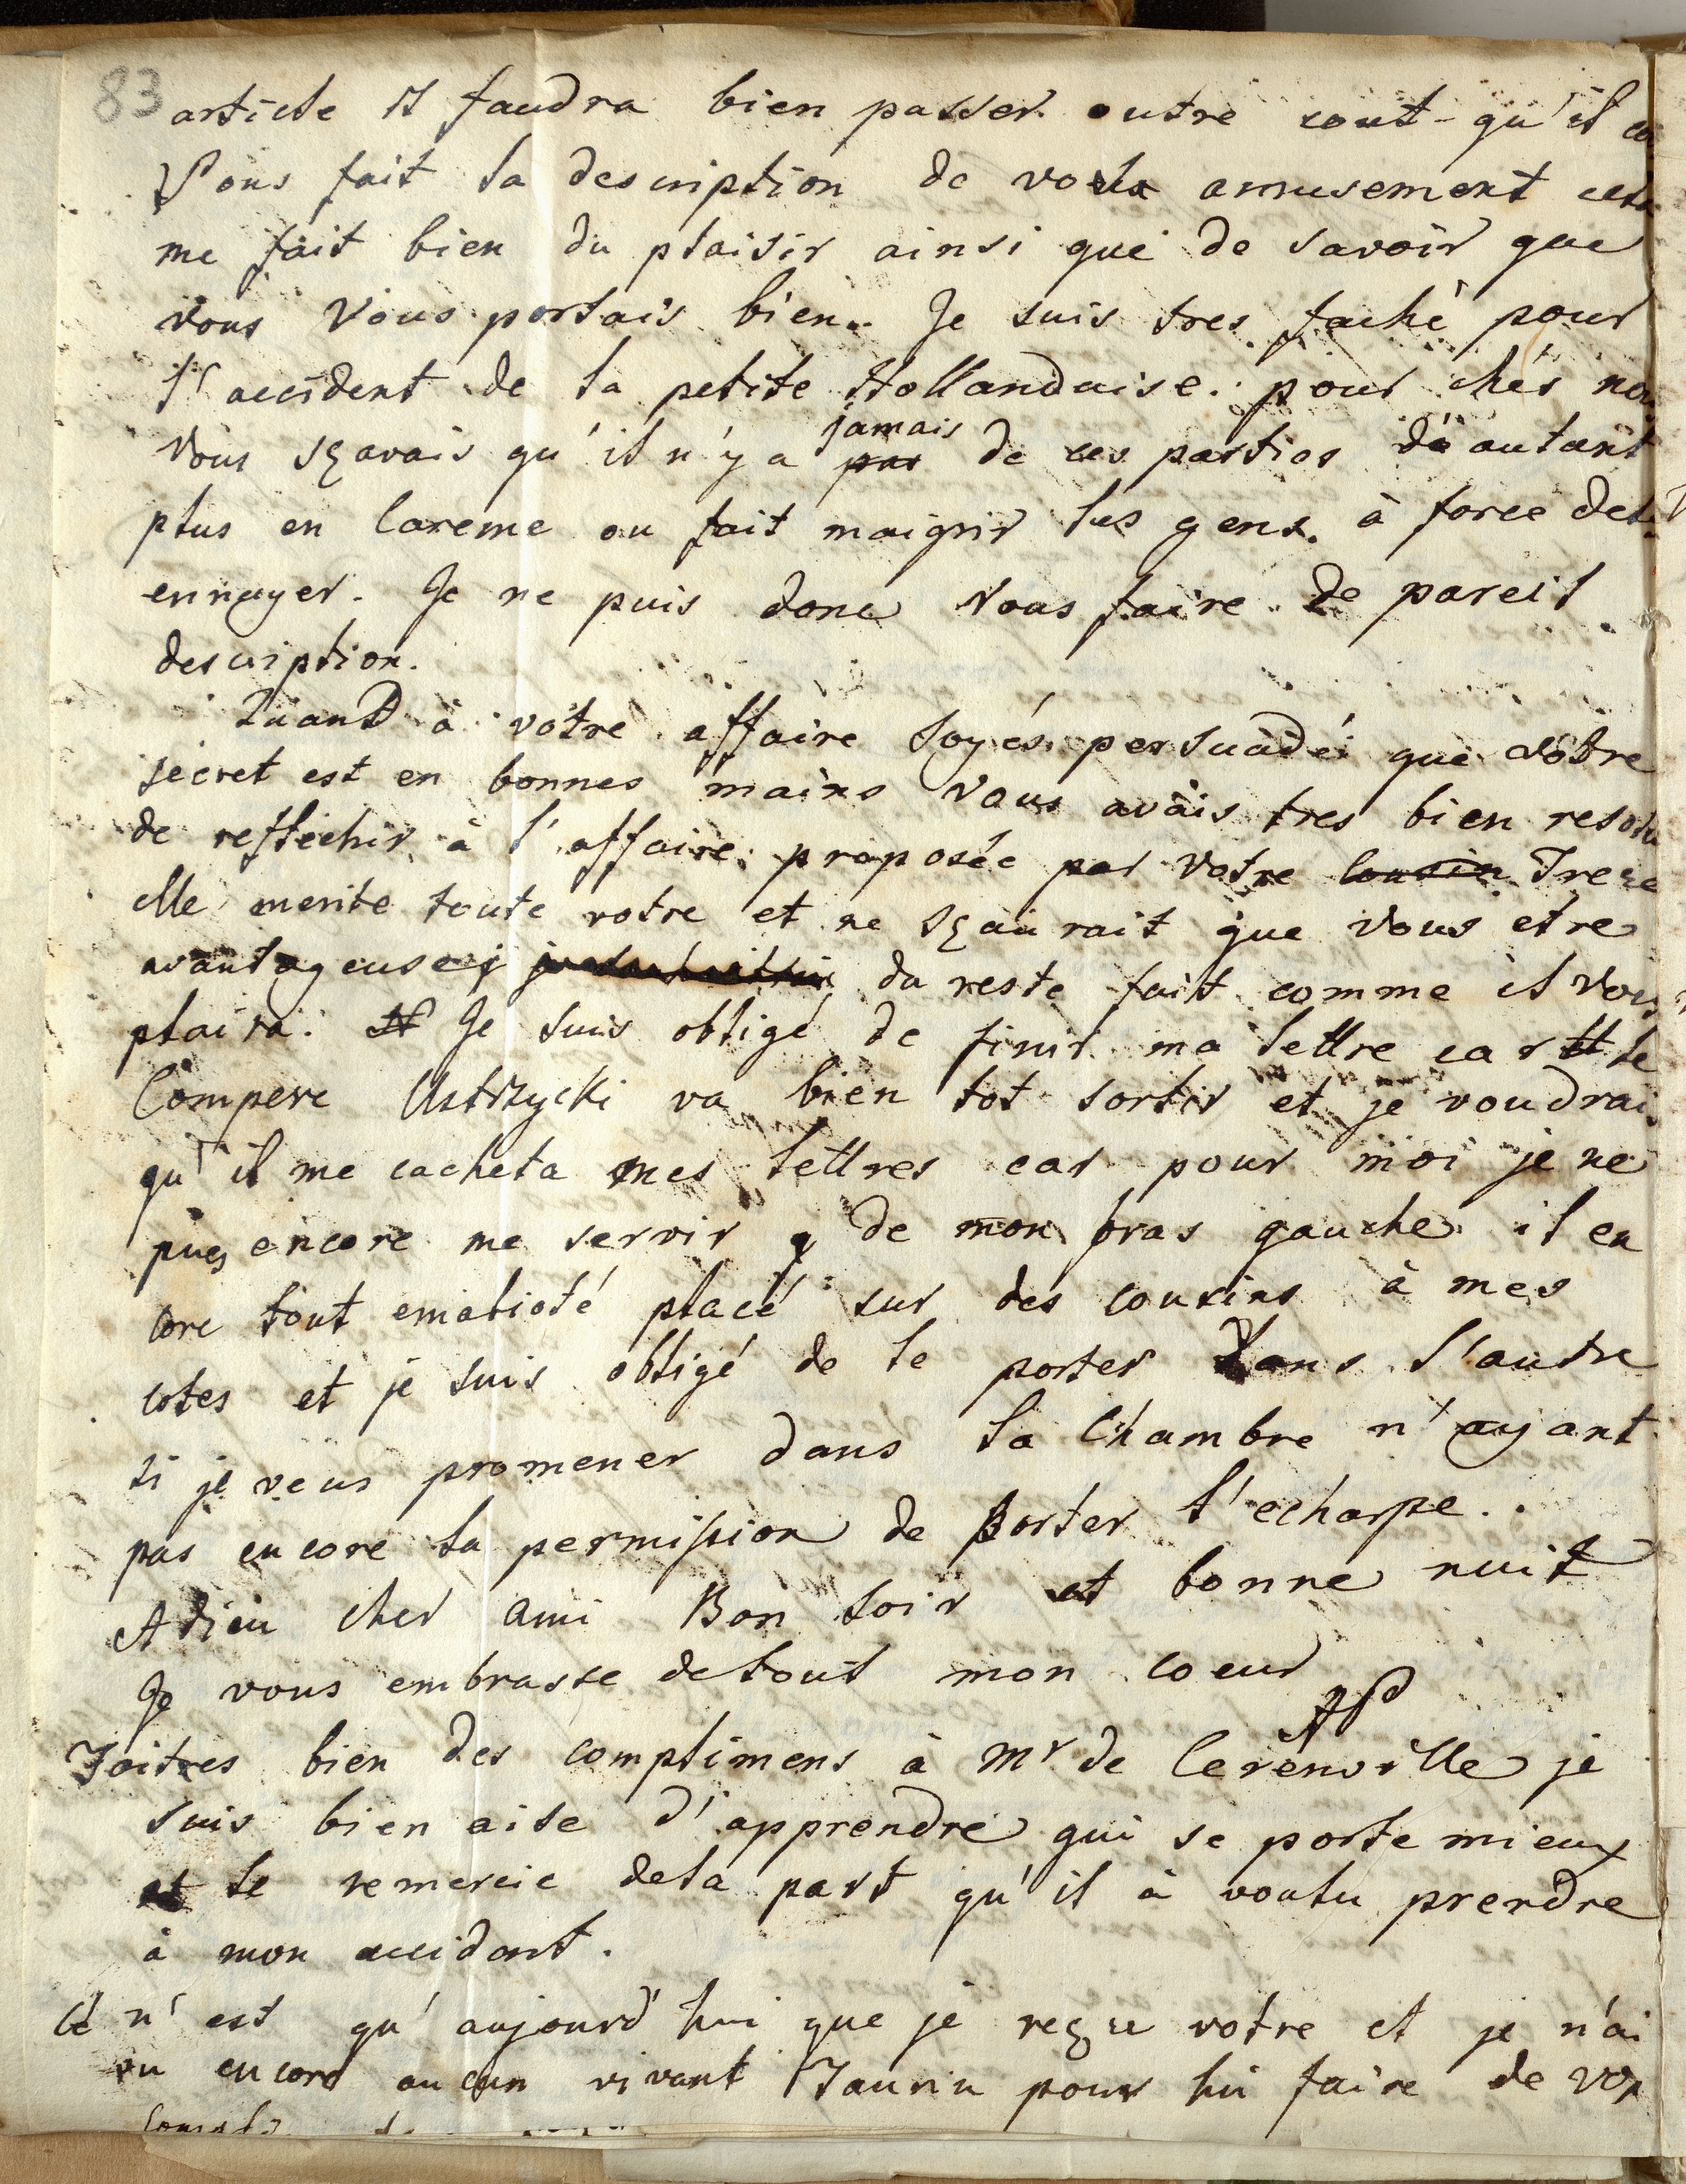 83
article il faudra bien passer outre cout-qu'il co
Vous fait la description de vos amusement cela
me fait bien du plaisir ainsi que de savoir que
vous vous portais bien. Je suis tres faché pour
l'accident de la petite Hollandaise. pour chés nou
jamais
vous sçavais qu'il n'y a pas de ces parties d'autant
plus en Careme ou fait maigrir les gens à force de
ennuyer. Je ne puis donc vous faire de pareil
description.
Quand à votre affaire soyés persuadé que votre
secret est en bonnes mains vous avais tres bien resolu
de reflechir à l'affaire proposée par votre cousin Frere
elle merite toute votre et ne sçaurait que vous etre
avantageuse du reste fait comme il vous
plaira. Je suis obligé de finir ma lettre car le
Compere Ustrzycki va bien tot sortir et je voudrai
qu'il me cacheta mes lettres car pour moi je ne
puis encore me servir de mon bras gauche il en
core tout emalioté placé sur des cousins à mes
cotes et je suis obligé de le porter dans l'autre
si je veus promener dans la Chambre n'ayant
pas encore la permission de porter l'echarpe.
Adieu cher ami Bon soir et bonne nuit
Je vous embrasse de tout mon coeur
AP
Faites bien des complimens à Mr de Cerenville je
suis bien aise d'apprendre qui se porte mieux
et le remercie dela part qu'il à voulu prendre
à mon accidant.
Ce n'est qu'aujourd'hui que je reçu votre et je n'ai
vu encore aucun vivant pour lui faire de vos